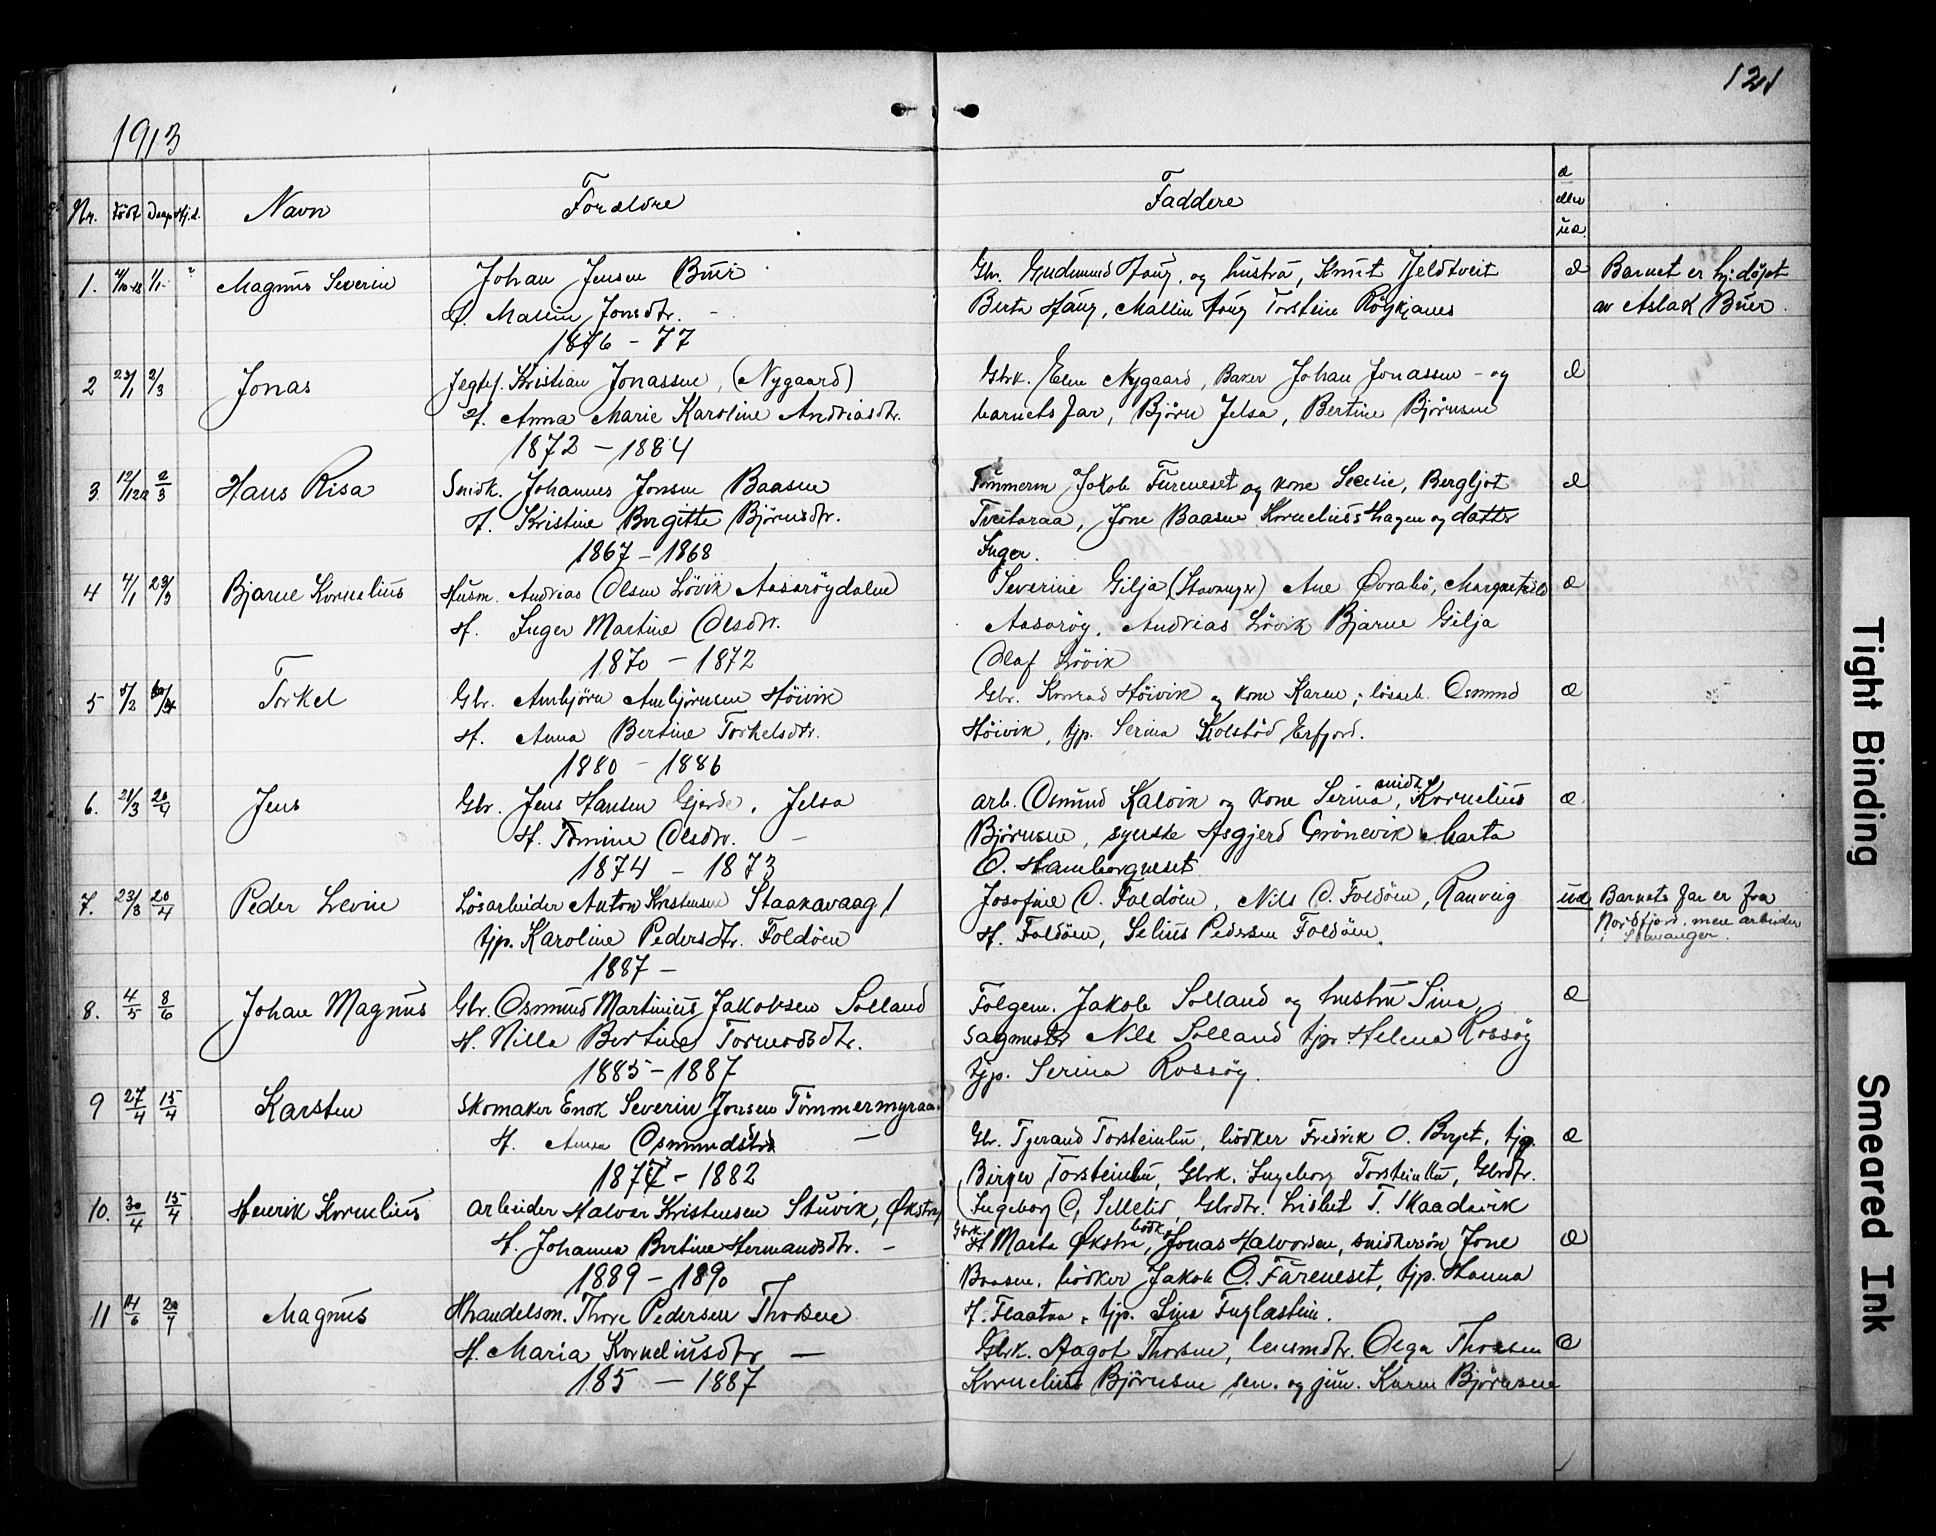 121
1913
Nr. Födt Døpt Hj.d. Navn Forældre Faddere æ eller uæ.
1. 1/1 Magnus Severin Johan Jensen Buer Gbr. Gudmund Haug, og hustru, Knut Tjeldtveit æ Barnet er hj.döpt
H. Malene Jonsdtr. Berta Haug, Malline Haug Torsteine Røgkjanes av Aslak Buer.
1876 - 77
2 23/1 2/3 Jonas Jegtef. Kristian Jonassen, (Nygaard) Gbrk. Elen Nygaard, Baker Johan Jonassen - og æ
H. Anna Marie Karoline Andreasdtr. barnets far, Björn Jelsa, Bertine Björnsen
1872 - 1884
3 12/12 2/3 Hans Risa Snidk. Johannes Jonsen Baasen Tömmerm Jakob Fureneset og kone Secelie, Bergljot æ
H. Kristine Bergitte Björnsdtr. Tveitaraa, Jone Baasen Kornelius Hagen og datter
1867 - 1868 Inger.
4 4/1 23/3 Bjarne Kornelius Husm. Andreas Olsen Lövik Aasarøydalen Severine Gilja (Stavanger) Ane Øvrabö, Margrethe æ
H. Inger Martine Olsdtr. Aasaröy, Andreas Lövik Bjarne Gilja
1870 - 1872 Olaf Lövik
5 5/2 Torkel Gbr. Ambjörn Ambjörnsen Höivik Gbr. Konrad Höivik og kone Karen, lösseb. Osmund æ
H. Anna Bertine Torkelsdtr. Höivik, tjp. Serina Kolstöd Erfjord.
1880 - 1886
6. 21/3 20/4 Jens Gbr. Jens Hansen Gjerde, Jelsa arb. Osmund Kalvik og kone Serina, snidk. Kornelius æ
H. Tomine Olsdtr. - Björnsen, syerske Asgjerd Grönevik Marta
1874 - 1873 O. Hamborgneset
7. 23/3 20/4 Peder Levin Lösarbeider Anton Kristensen Staakavaag/ Josefine O. Foldöen, Nils O. Foldöen, Ranveig uæ Barnets far er fra
tjp. Karoline Pedersdtr. Foldöen H. Foldöen, Selius Pedersen Foldöen. Nordfjord, men arbeider
1887 - i Stavanger.
8. 4/5 8/6 Johan Magnus Gbr. Osmund Martinius Jakobsen Solland Folgem. Jakob Solland og hustru Sina, æ
H. Nilla Bertine Tormodsdtr. Sagmester Nils Solland tjp. Helena Rossöy
1885 - 1887 tjp. Serina Rossöy.
9 27/4 15/4 Karsten Skomaker Enok Severin Jonsen Tömmermyraa
H. Anna Osmundsdtr. - Gbr. Tgerand Torsteinbu, bödker Fredrik O. Berget, tjg. æ
1877 - 1882 Birger Torsteinbu, Gbrk. Ingeborg Torsteinbu, Gbrdtr.
10. 30/4 15/4 Henrik Kornelius arbeider Halvar Kristensen Stuvik, Økstra Ingeborg O. Selleter, Gbrdtr. Lisbet T. Maadevik
H. Johanna Bertine Hermandsdtr. - Gbrk. Marta Økstra, bödk. Jonas Halvorsen, snidkersön Jone æ
1889 - 1890 Baasen, bödker Jakob O. Fureneset, tjp. Hanna
11 14/6 20/7 Magnus Handelsm. Thore Pedersen Thorsen H. Flaataa, tjp. Sina Fuglestein.
H. Maria Korneliusdtr - Gbrk. Aagot Thorsen, lensmdtr. Olga Thorsen æ
185 - 1887 Kornelius Björnsen sen. og jun. Karen Björnsen
Tight Binding
Smeared Ink